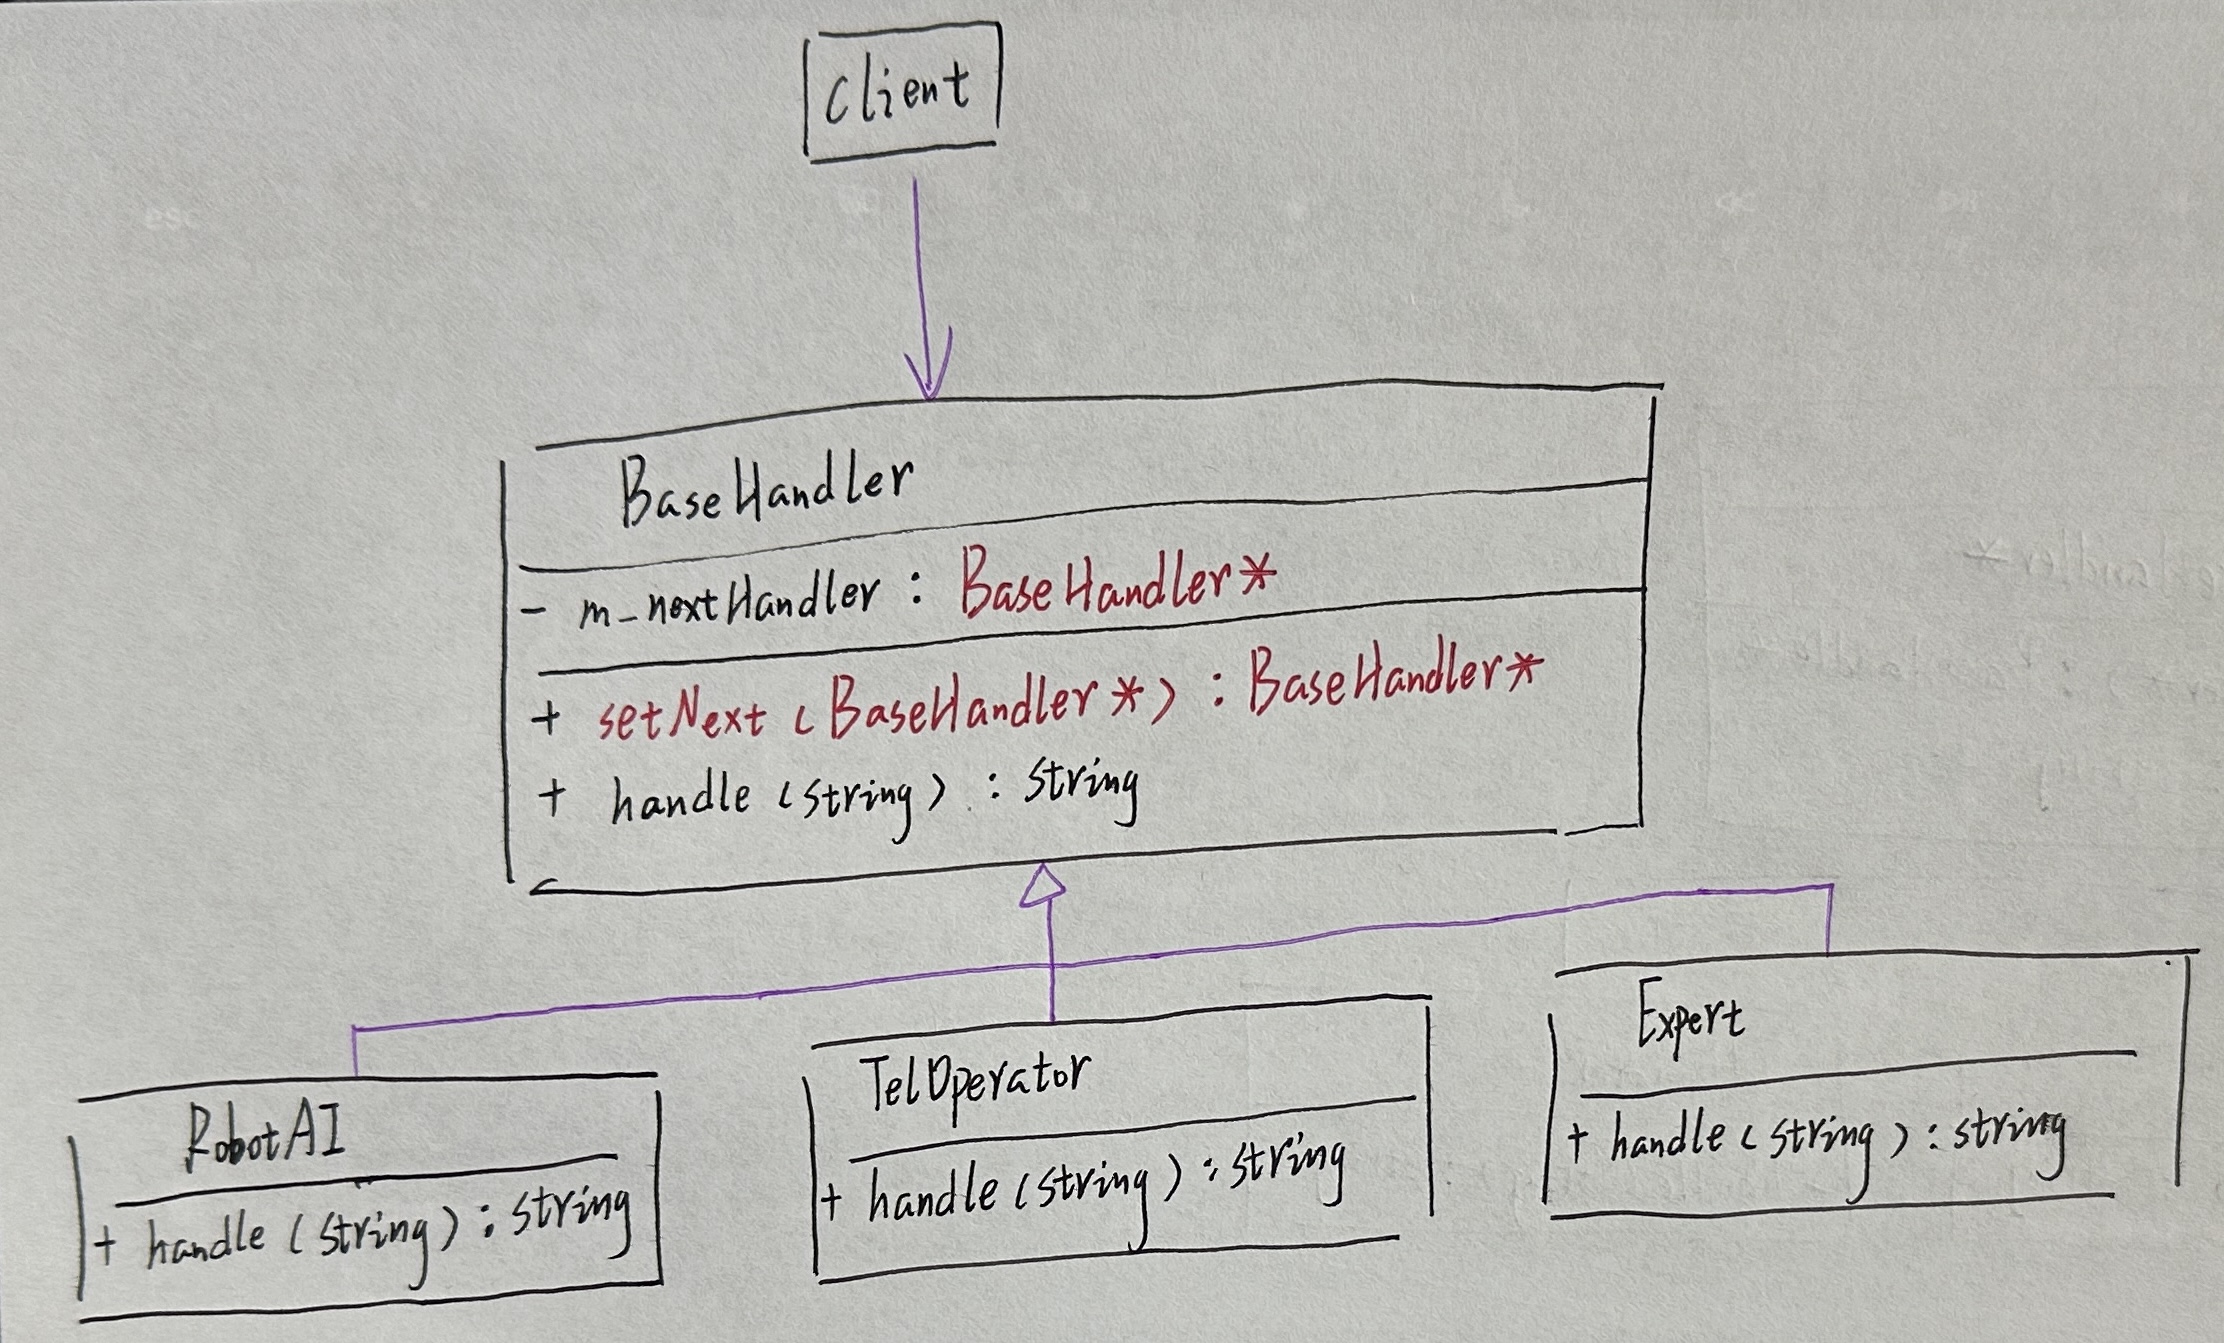 Client
BaseHandler
- m_nextHandler : BaseHandler*
+ setNext (BaseHandler*) : BaseHandler*
+ handle (string) : string
RobotAI
+ handle (string) : string
TelOperator
+ handle (string) : string
Expert
+ handle (string) : string
esc